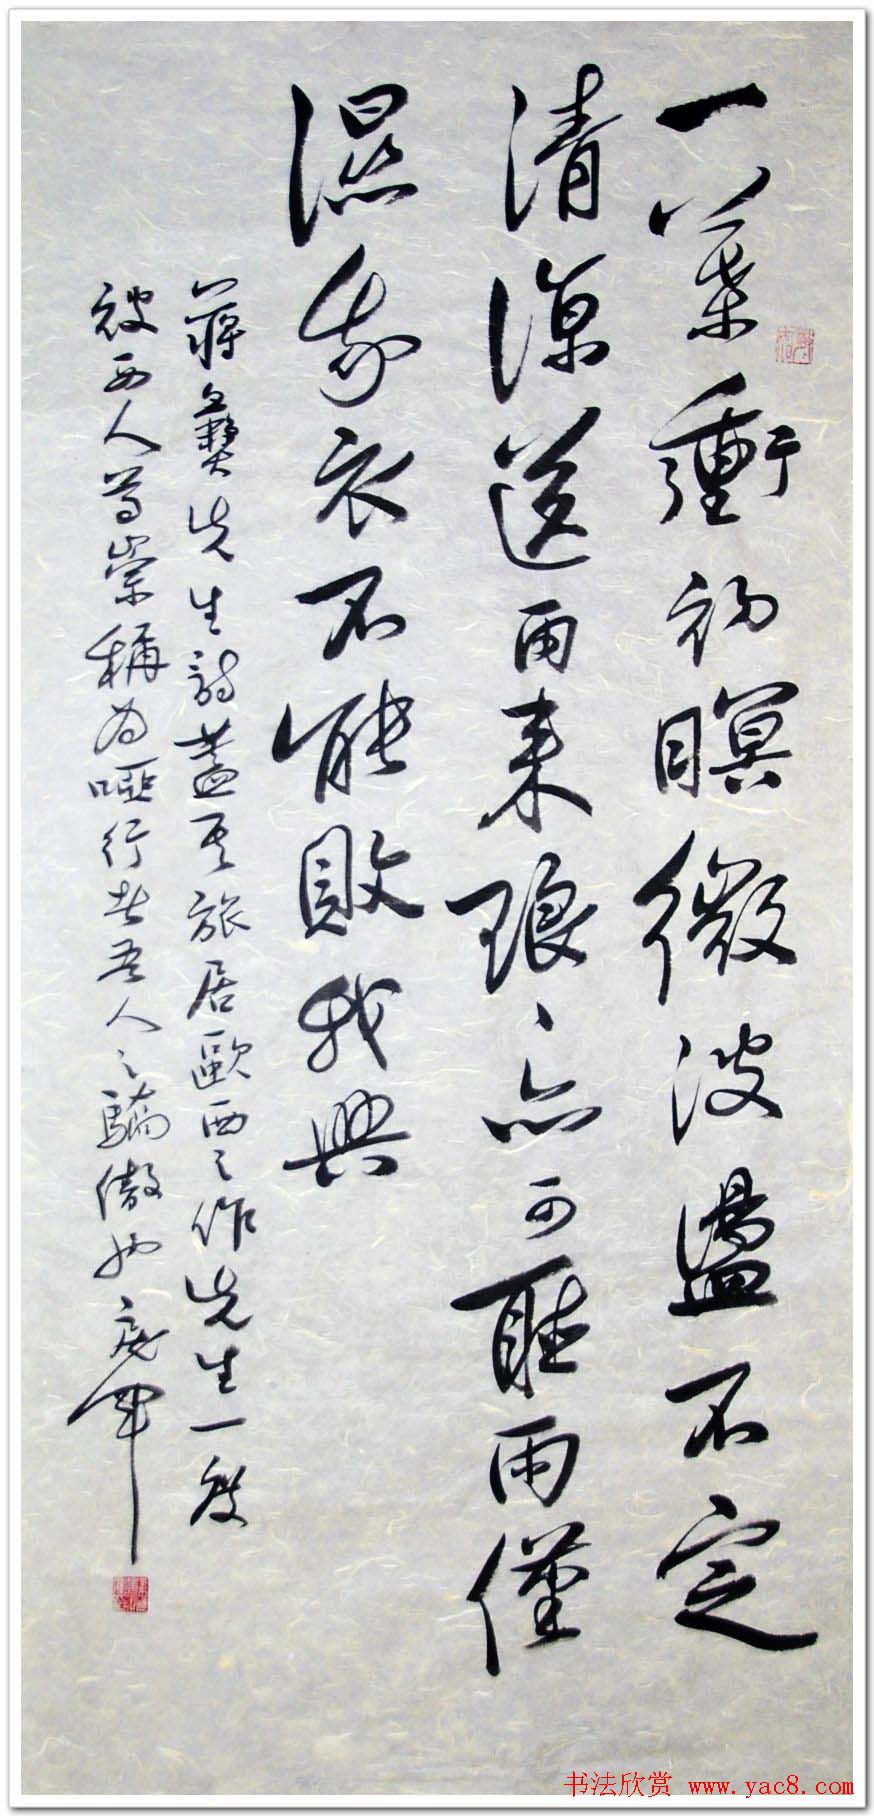 一葉衝初暝微波盪不定
清涼送雨来琅々亦可聽雨僅
濕我衣不能敗我興
蔣彝先生詩蓋其旅居歐西之作先生一度
被西人尊崇稱為啞行者吾人之驕傲也
书法欣赏 www.yac8.com